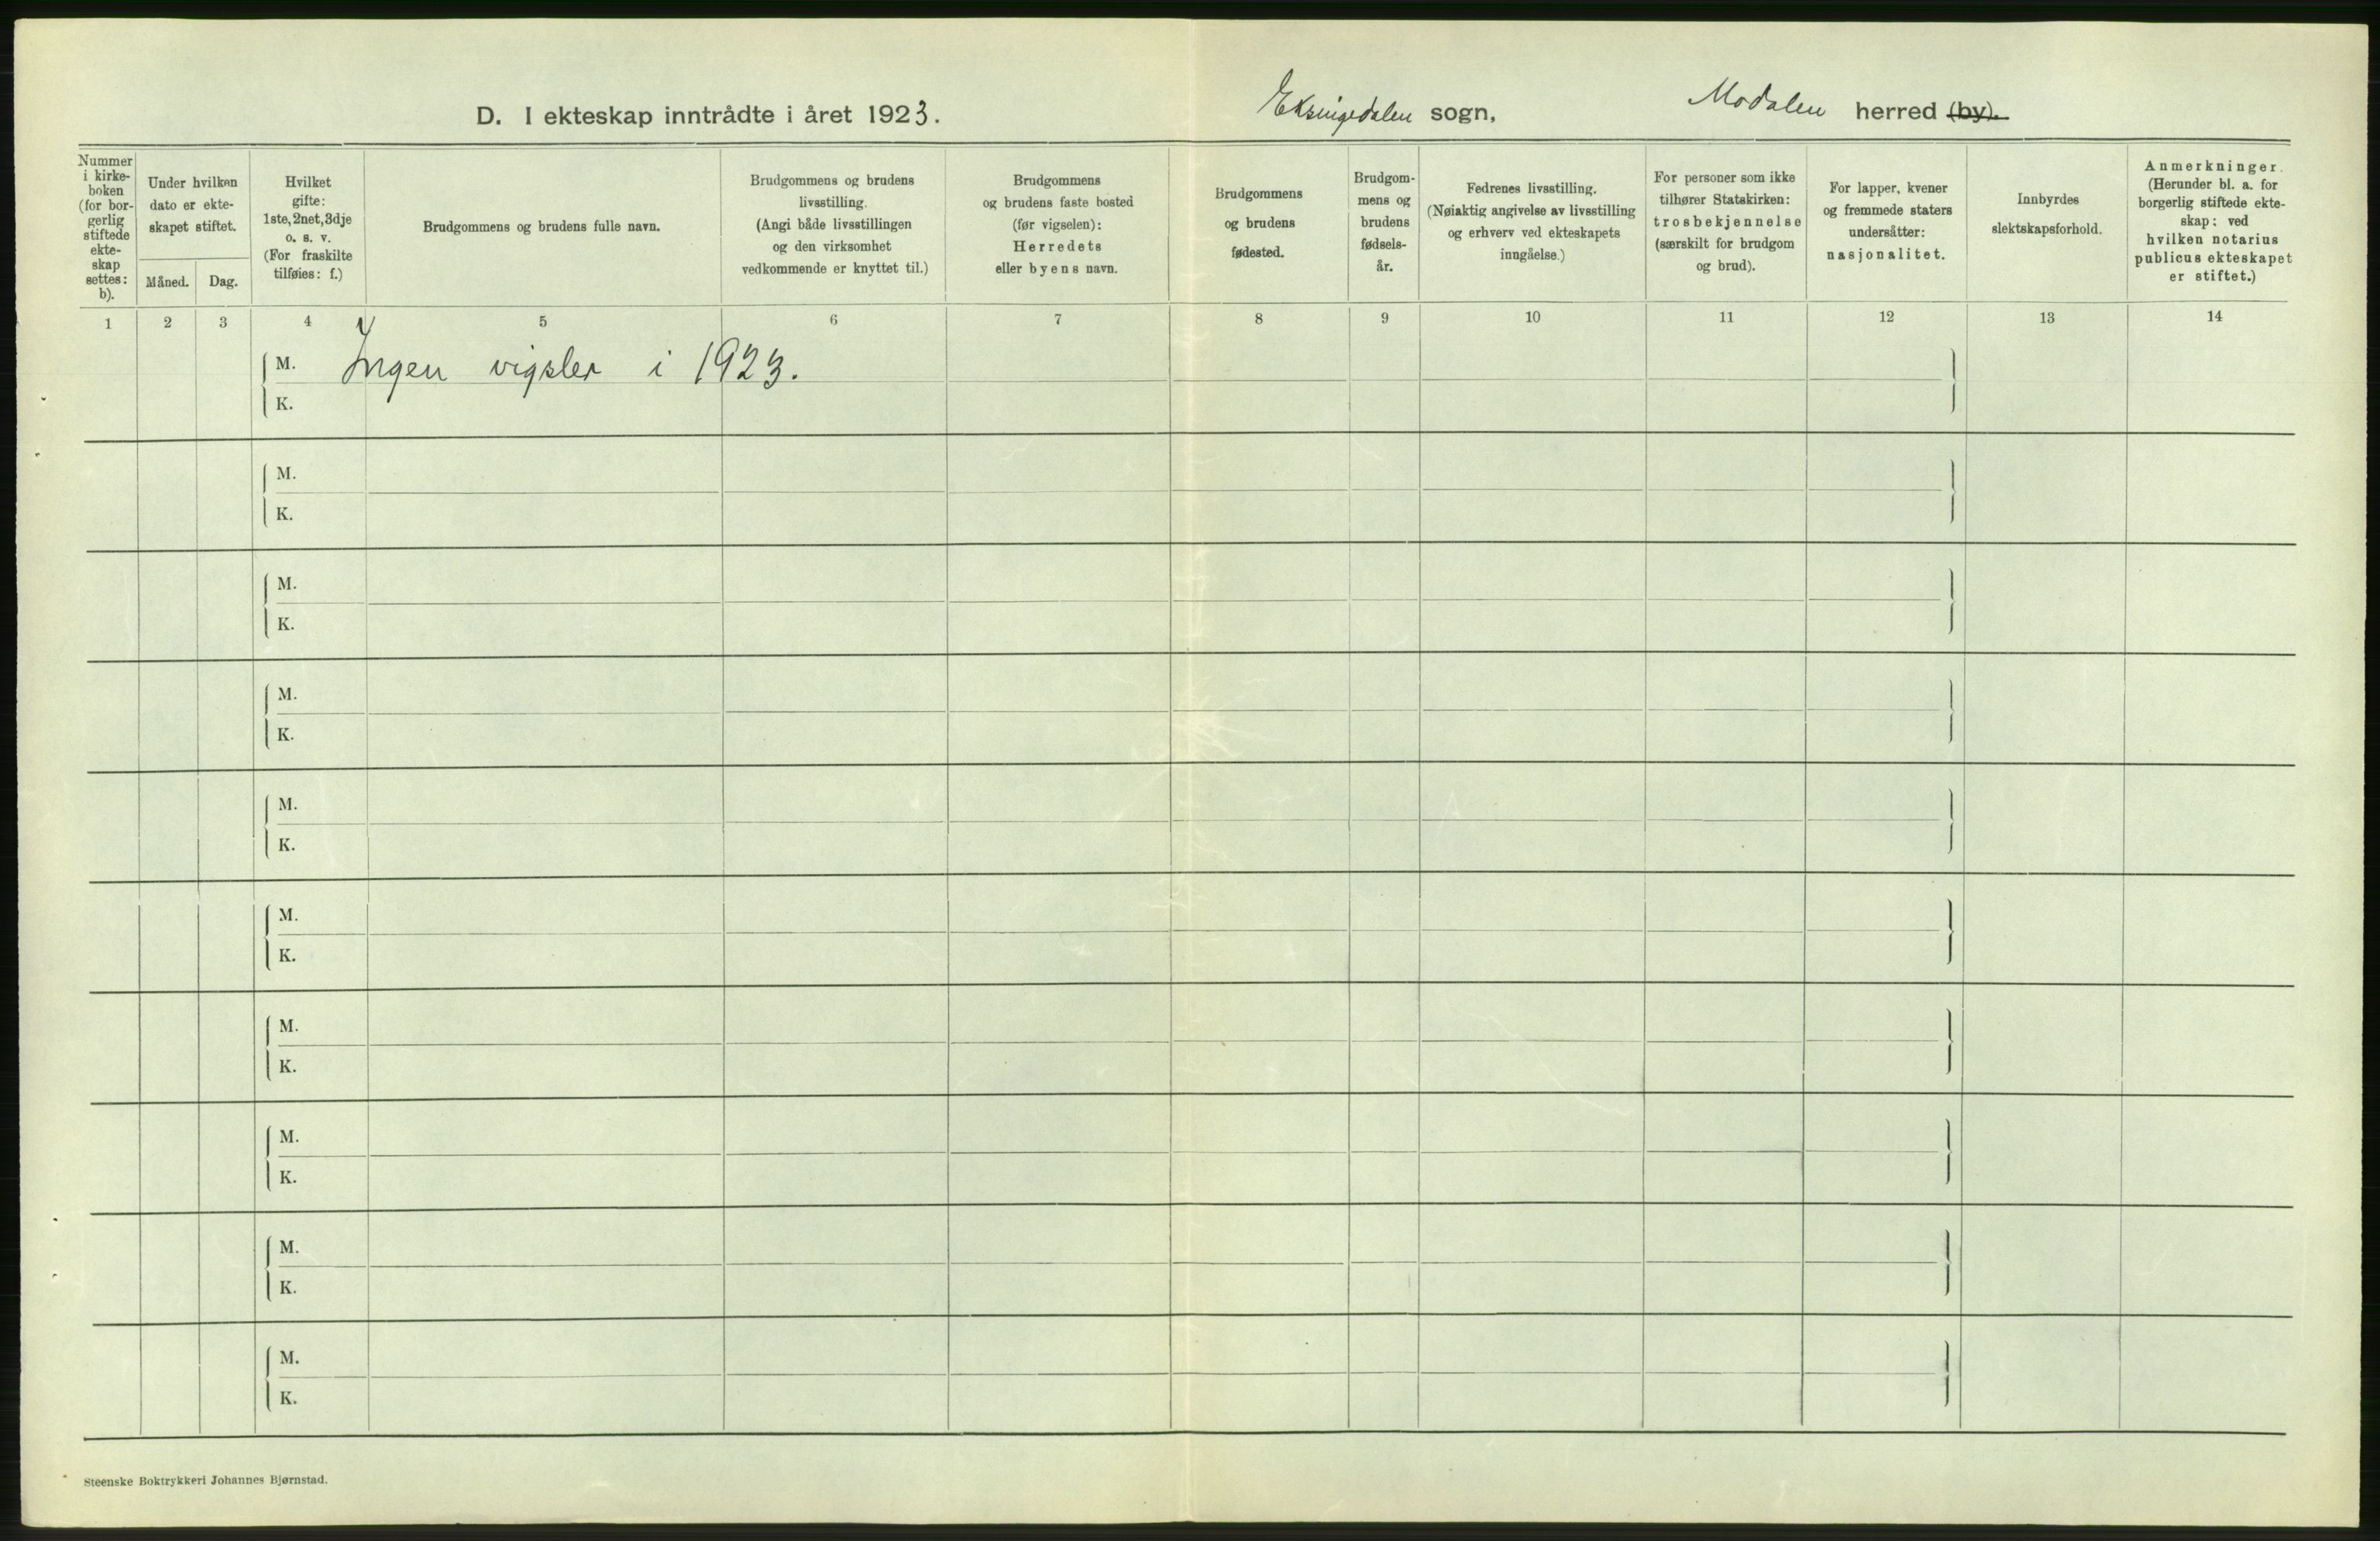 D. I ekteskap inntrådte i året 1923. Eksingedalen sogn, Modalen herred (by).
Nummer
i kirke-
boken
(for bor-
gerlig
stiftede
ekte-
skap
settes:
b).
Under hvilken
dato er ekte-
skapet stiftet.
Måned.
Dag.
Hvilket
gifte:
1ste, 2net, 3dje
o. s. v.
(For fraskilte
tilføies: f.)
Brudgommens og brudens fulle navn.
Brudgommens og brudens
livsstilling.
(Angi både livsstillingen
og den virksomhet
vedkommende er knyttet til.)
Brudgommens
og brudens faste bosted
(før vigselen):
Herredets
eller byens navn.
Brudgommens
og brudens
fødested.
Brudgom-
mens og
brudens
fødsels-
år.
Fedrenes livsstilling.
(Nøiaktig angivelse av livsstilling
og erhverv ved ekteskapets
inngåelse.)
For personer som ikke
tilhører Statskirken:
trosbekjennelse
(særskilt for brudgom
og brud).
For lapper, kvener
og fremmede staters
undersåtter:
nasjonalitet.
Innbyrdes
slektskapsforhold.
Anmerkninger.
(Herunder bl. a. for
borgerlig stiftede ekte-
skap: ved
hvilken notarius
publicus ekteskapet
er stiftet.)
1 2 3 4 5 6 7 8 9 10 11 12 13 14
M. Ingen vigsler i 1923.
K.
M.
K.
M.
K.
M.
K.
M.
K.
M.
K.
M.
K.
M.
K.
M.
K.
M.
K.
Steenske Boktrykkeri Johannes Bjørnstad.